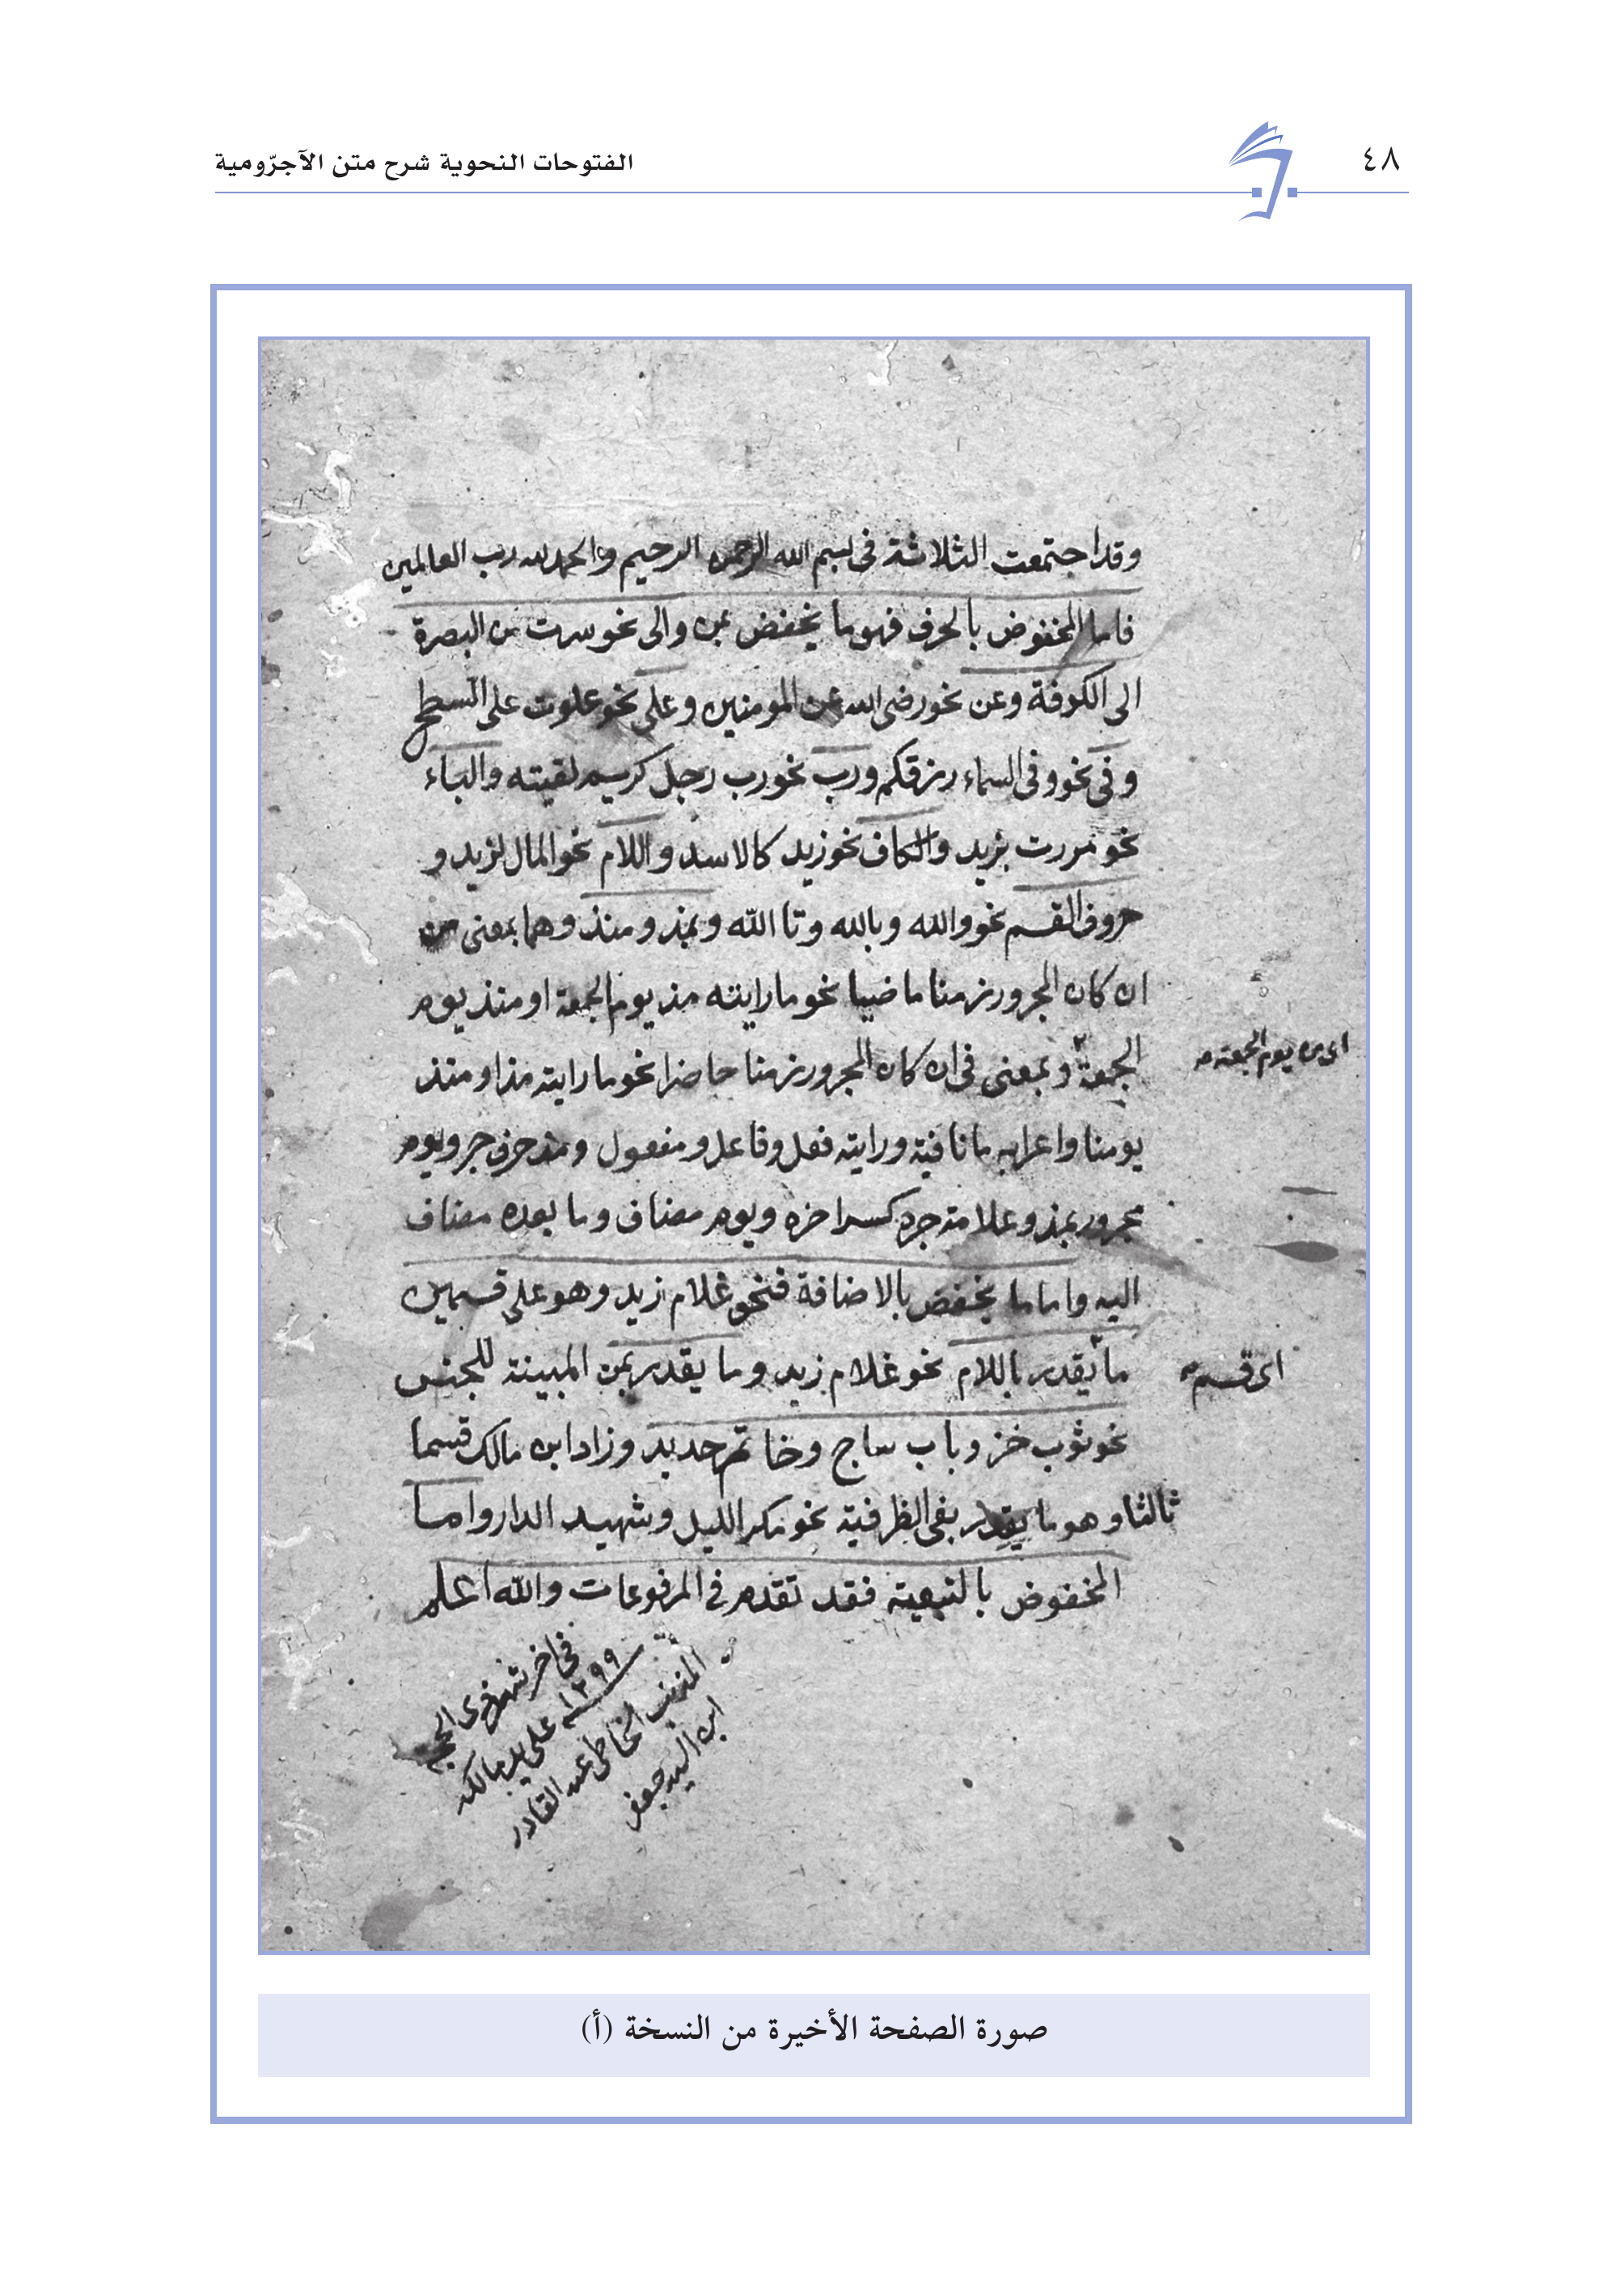 ٤٨
الفتوحات النحوية شرح متن الآجرّومية
وقد اجتمعت الثلاثة فى بسم الله الرحمن الرحيم والحمد لله رب العالمين
فاما المخفوض بالحرف فهو ما يخفض بمن والى نحو سرت من البصرة
الى الكوفة وعن نحو رضى الله عن المومنين وعلى نحو علوت على السطح
وفى نحو وفى السماء رزقكم ورب نحو رب رجل كريم لقيته والباء
نحو مررت بزيد والكاف نحو زيد كالاسد واللام نحو المال لزيد و
حروف القسم نحو والله وبالله وتا الله وبمذ ومنذ وهما بمعنى من
ان كان المجرور زمنا ماضيا نحو ما رايته مذ يوم الجمعة او منذ يوم
اى من يوم الجمعة
الجمعة وبمعنى فى ان كان المجرور زمنا حاضرا نحو ما رايته مذ او منذ
يومنا واعرابه ما نافية ورايته فعل وفاعل ومفعول ومذ حرف جر ويوم
مجرور بمذ وعلامة جره كسر اخره ويوم مضاف وما بعده مضاف
اليه واما ما يخفض بالاضافة فنحو غلام زيد وهو على قسمين
ما يقدر باللام نحو غلام زيد وما يقدر بمن المبينة للجنس
اى قسم
نحو ثوب خز وباب ساج وخاتم حديد وزاد ابن مالك قسما
ثالثا وهو ما يقدر بفى الظرفية نحو مكر الليل وشهيد الدار واما
المخفوض بالتبعية فقد تقدم فى المرفوعات والله اعلم
فى اخر شهر ذى الحجة
١٢٩٩ على يد مالكه
المذنب الخاطى عبد القادر
ابن السيد جعفر
صورة الصفحة الأخيرة من النسخة (أ)